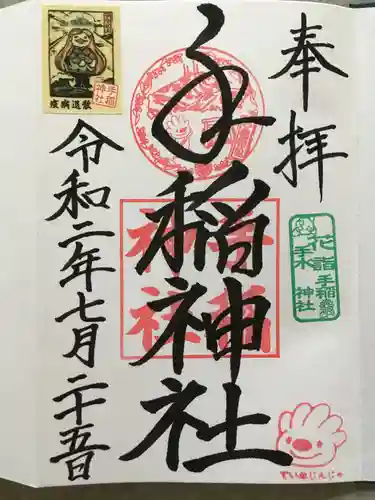 奉拝
手稲神社
令和二年七月二十五日
疫病退散
手稲神社
手稲神社
花詣
手水
手稲
神社
ていねじんじゃ